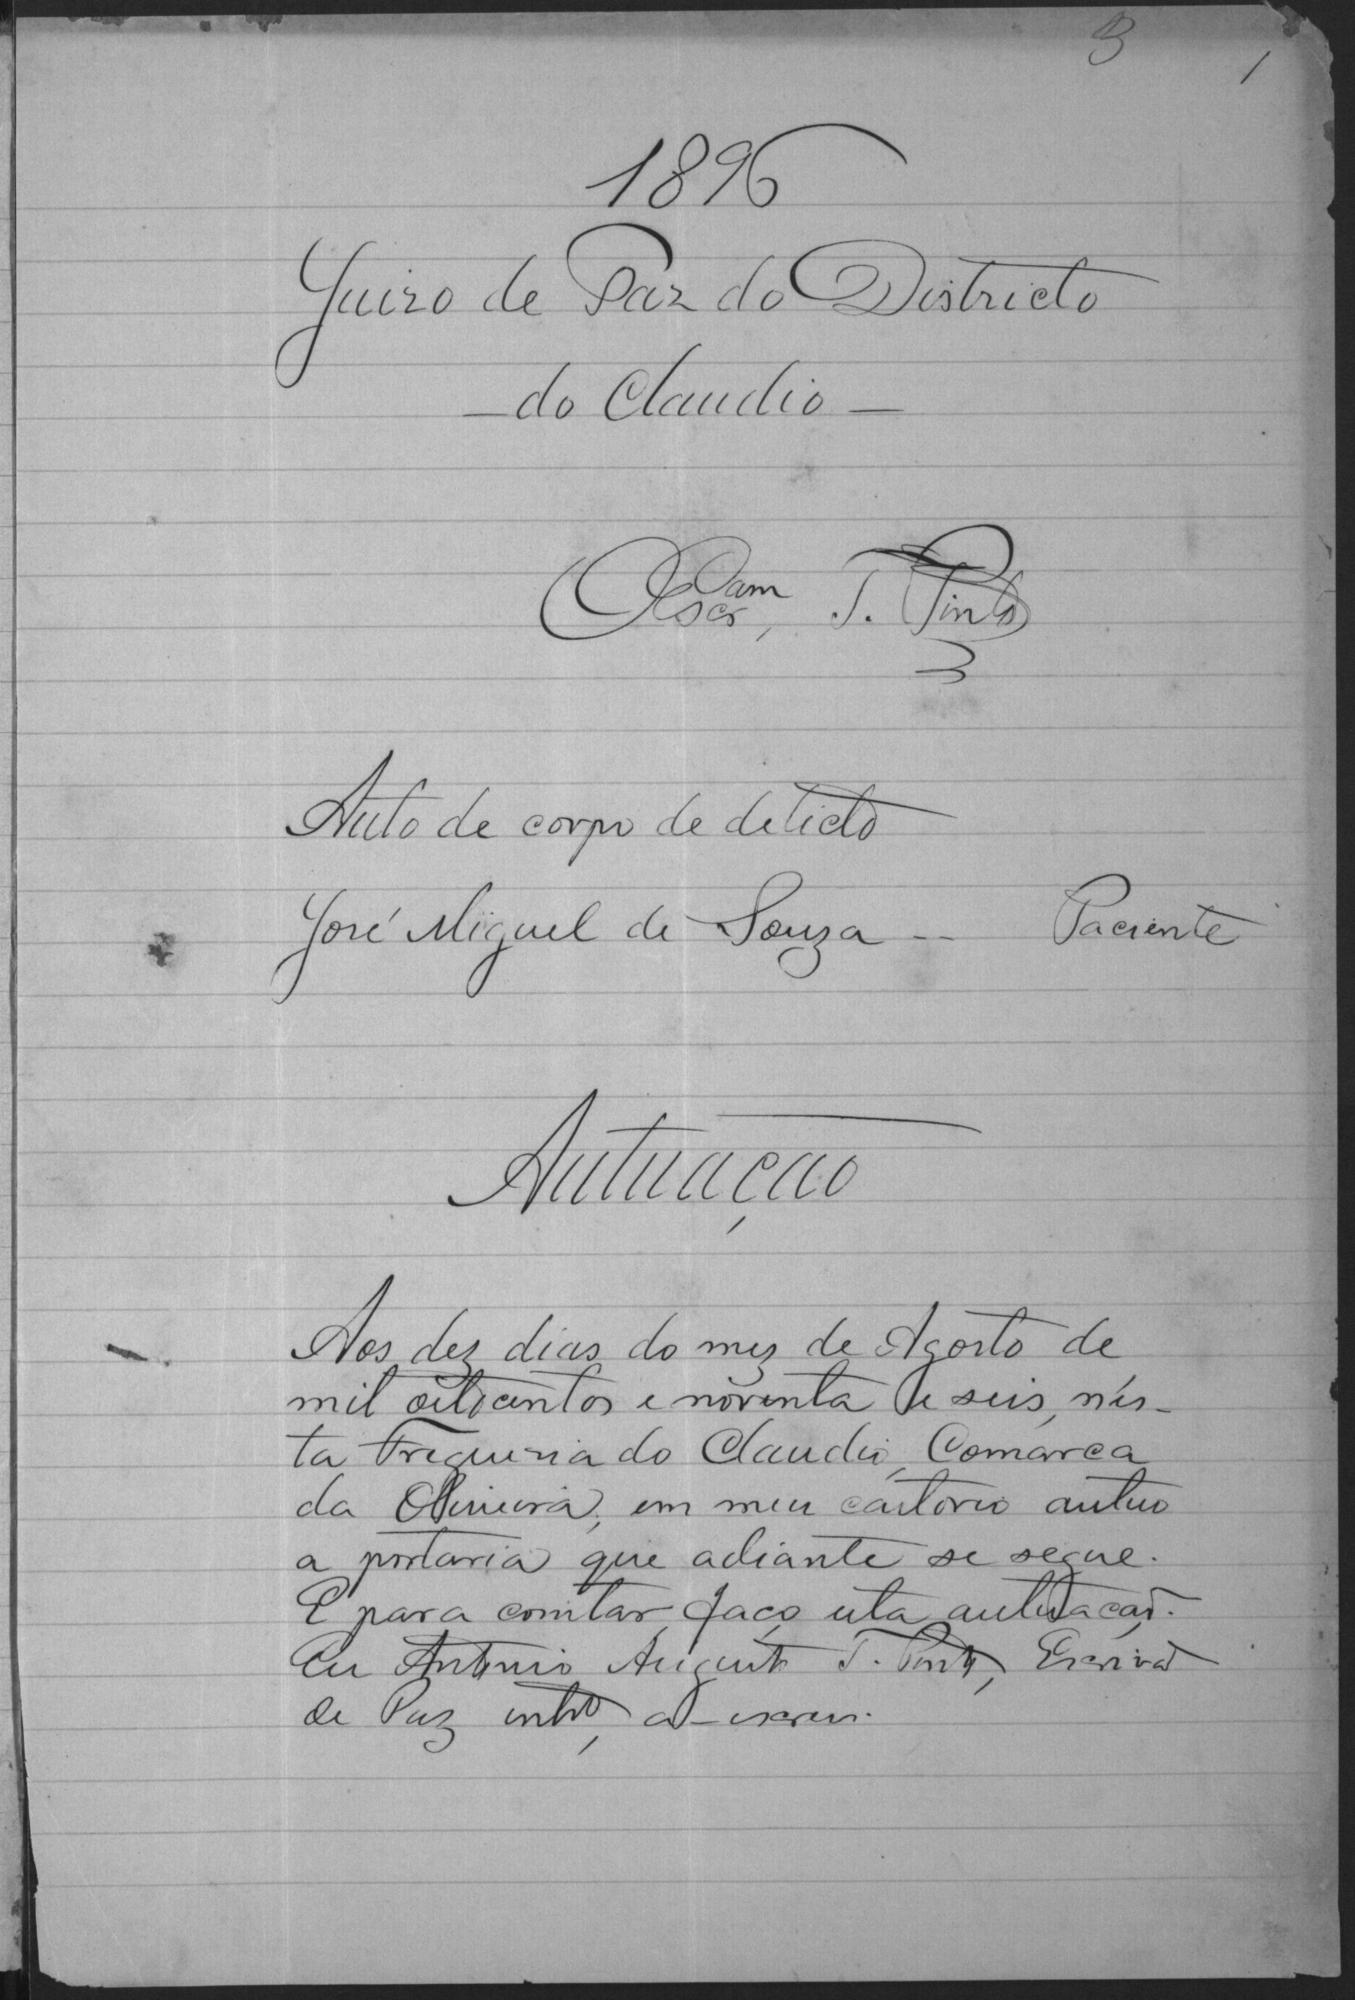 3 1
1896
Juizo de Paz do Districto
— do Claudio —
Escram, T. Pinto
Auto de corpo de delicto
José Miguel de Souza -- Paciente
Autuação
Aos dez dias do mez de Agosto de
mil oitocentos e noventa e seis, nés-
ta Freguezia do Claudio, Comarca
da Oliveira, em meu cartorio autuo
a portaria que adiante se segue.
E para constar, faço esta autuação.
Eu Antonio Augusto T. Pinto, Escrivão
de Paz intrº, a escrevi.